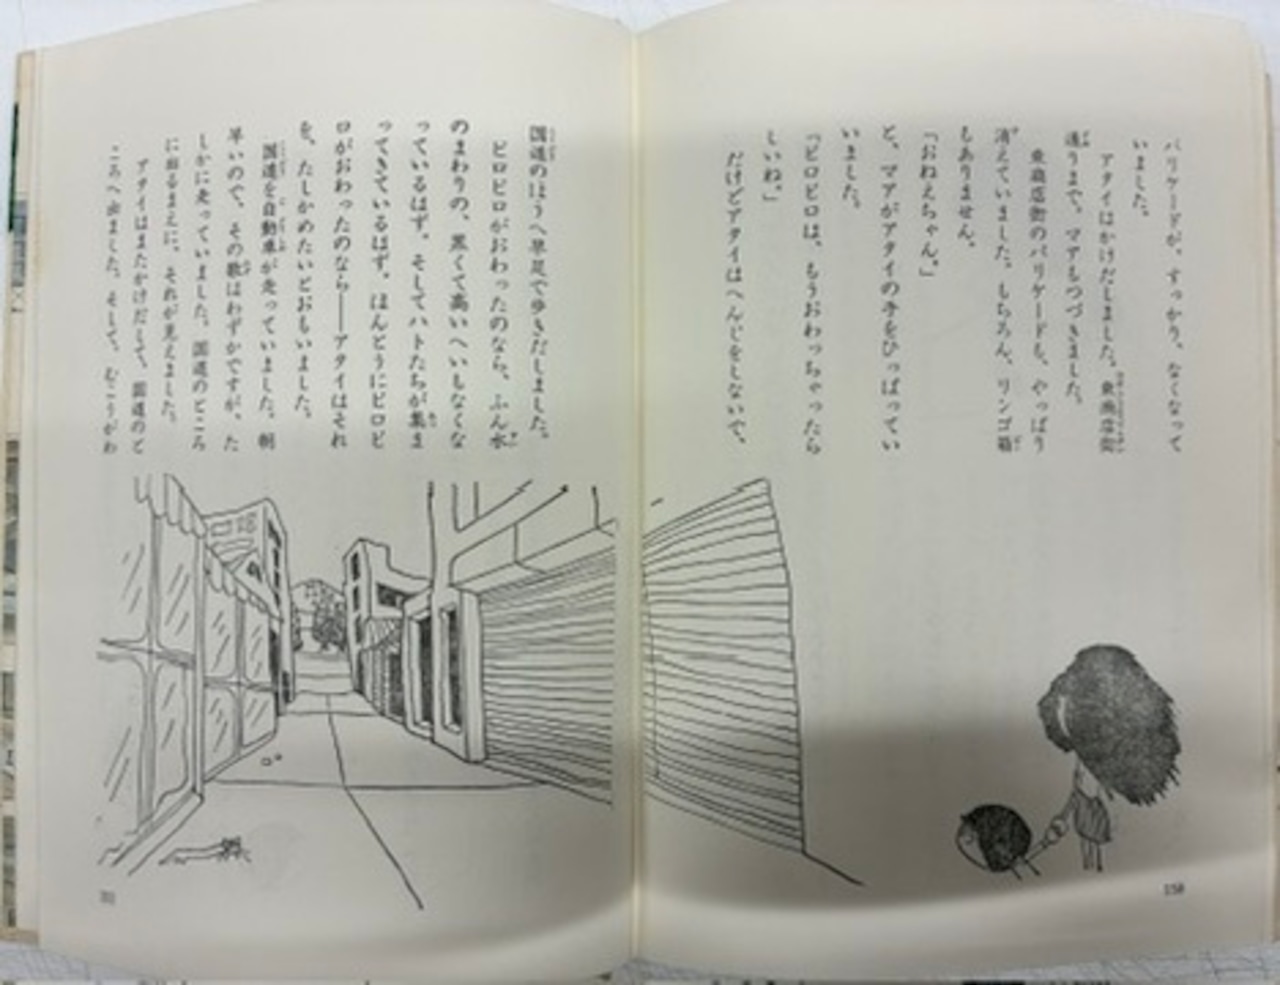 バリケードが、すっかり、なくなって
いました。
アタイはかけだしました。東商店街
通りまで。マアもつづきました。
東商店街のバリケードも、やっぱり
消えていました。もちろん、リンゴ箱
もありません。
「おねえちゃん。」
と、マアがアタイの手をひっぱってい
いました。
「ピロピロは、もうおわっちゃったら
しいね。」
だけどアタイはへんじをしないで、
158
国道のほうへ早足で歩きだしました。
ピロピロがおわったのなら、ふん水
のまわりの、黒くて高いへいもなくな
っているはず。そしてハトたちが集ま
ってきているはず。ほんとうにピロピ
ロがおわったのなら――アタイはそれ
を、たしかめたいとおもいました。
国道を自動車が走っていました。朝
早いので、その数はわずかですが、た
しかに走っていました。国道のところ
に出るまえに、それが見えました。
アタイはまたかけだして、国道のと
ころへ出ました。そして、むこうがわ